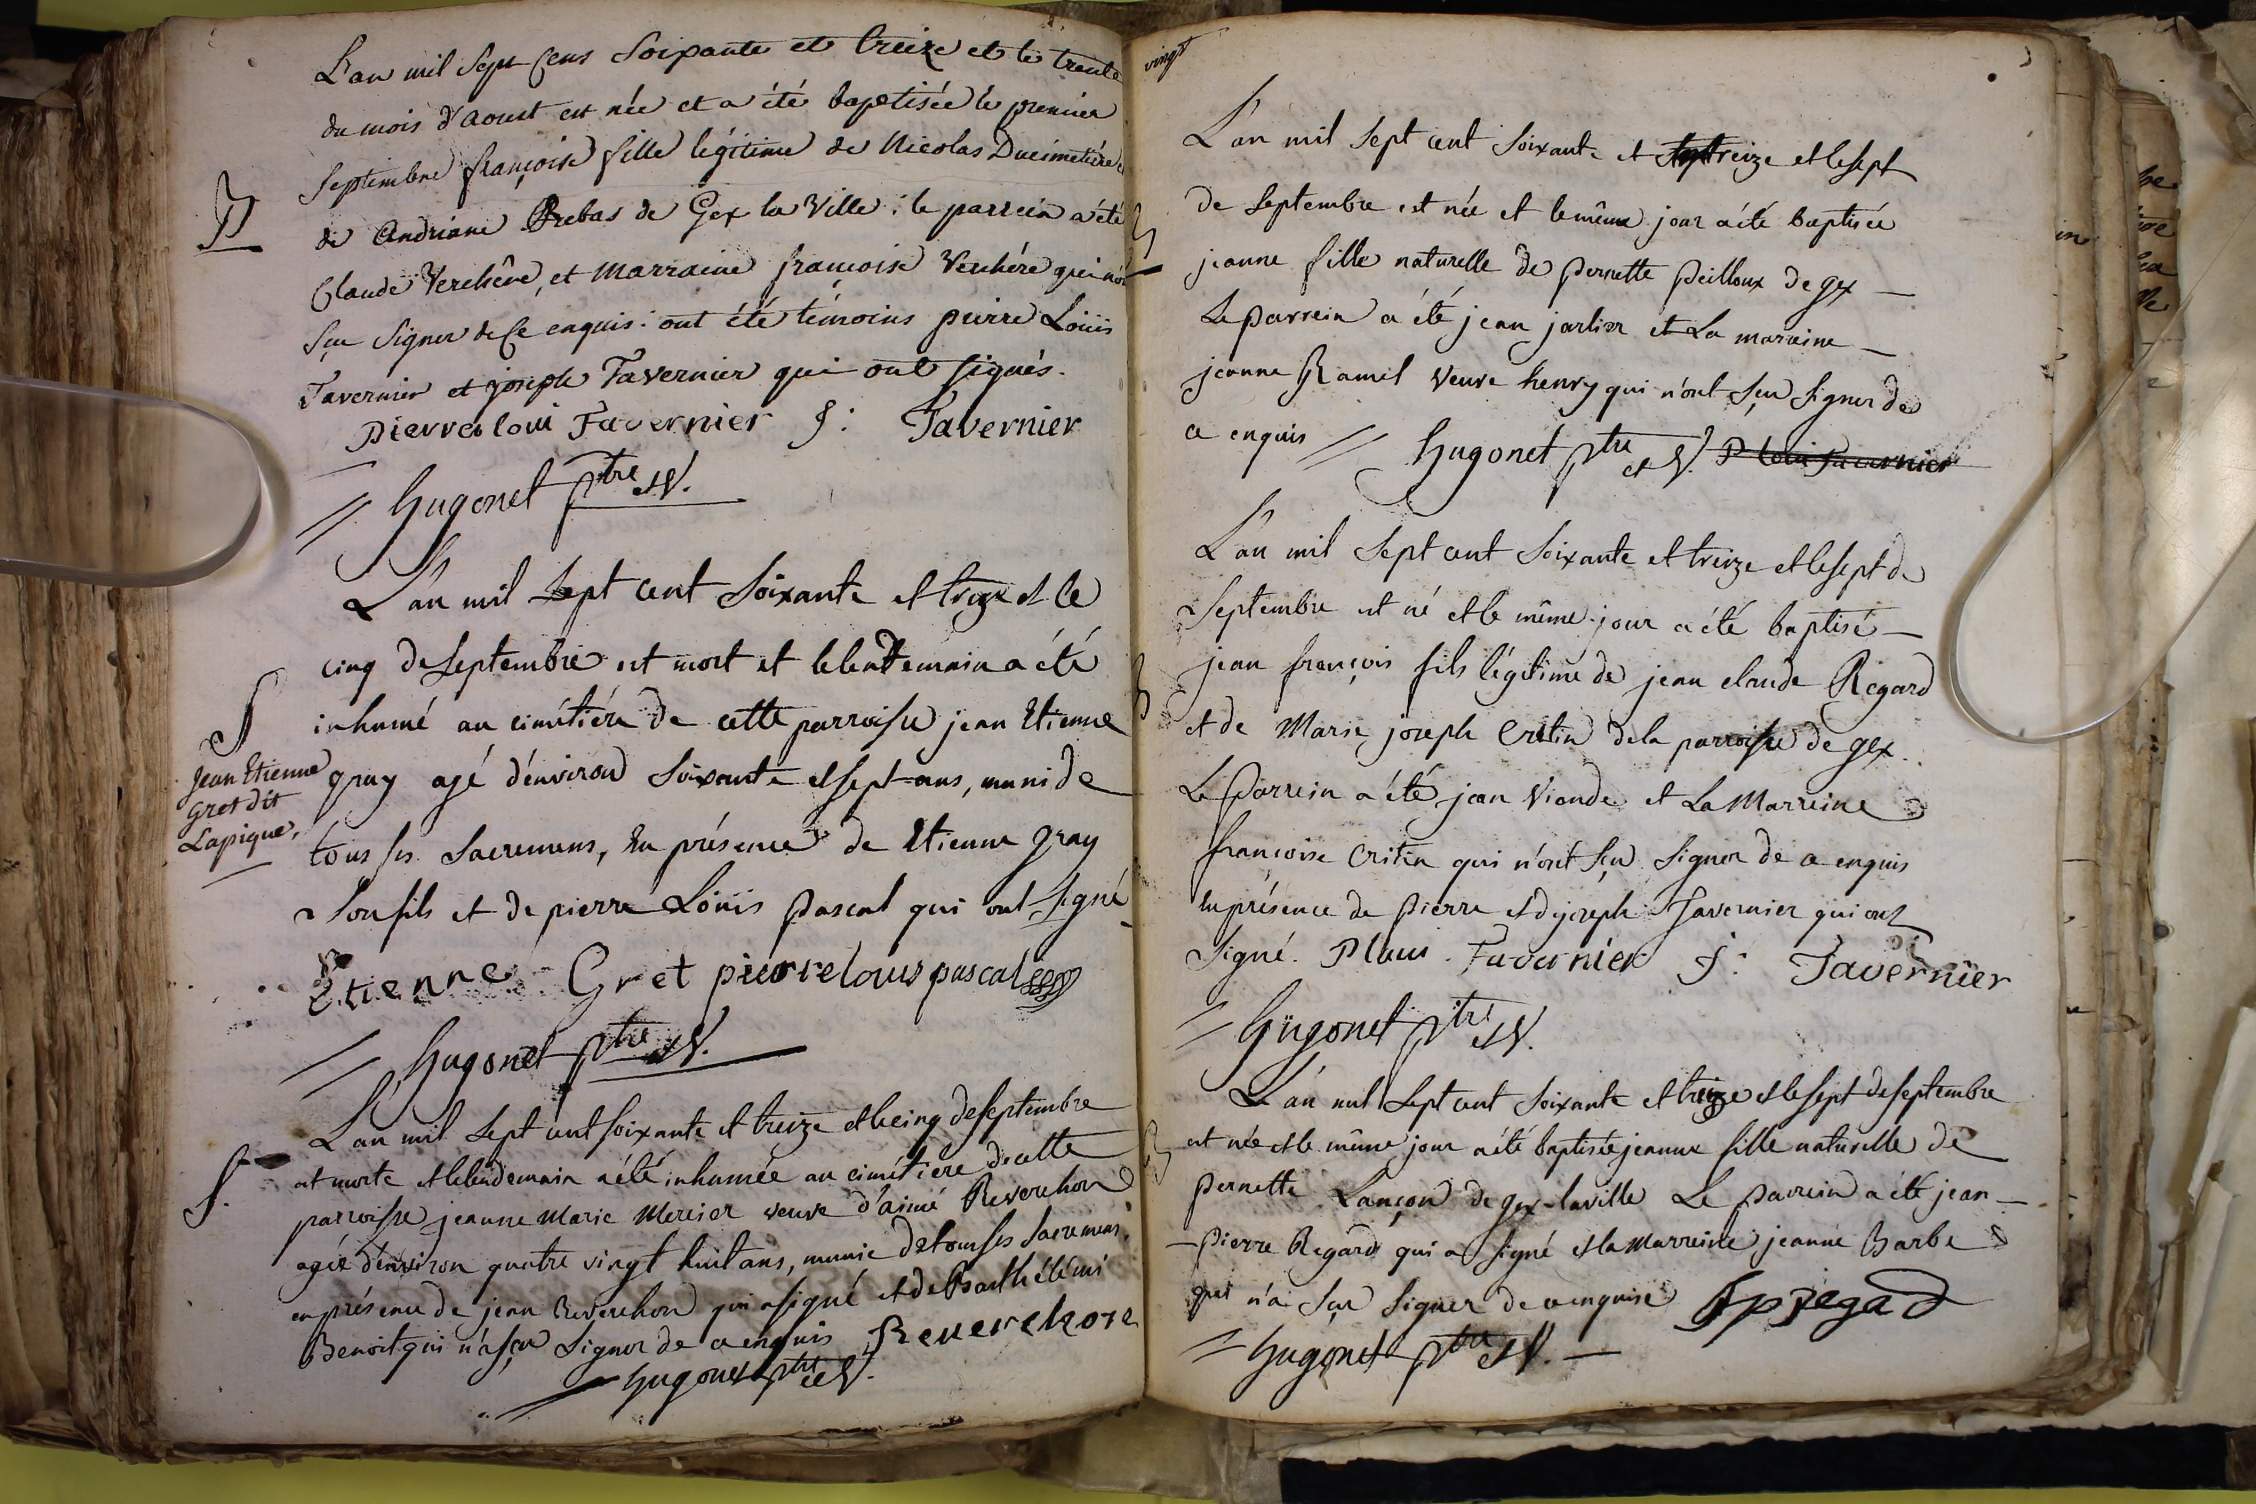 L'an mil Sept Cens Soixante et treize et le trente
du mois d'aoust est née et a été baptisée le premier
Septembre françoise fille légitime de Nicolas Ducimetière et
B
de Andriane Brebas de Gex la Ville : le parrein a été
Claude Verchère, et Marraine françoise Verchére qui n'ont
sçu Signer de Ce enquis : ont été témoins pierre Loüis
Tavernier et joseph Tavernier qui ont signés.
pierre loui Tavernier J : Tavernier
// Hugonet ptre et V.
L'an mil Sept cent Soixante et treize et le
cinq de Septembre est mort et le lendemain a été
S
inhumé au cimétiére de cette parroisse jean Etienne
Jean Etienne
Gret dit
Lapique,
gray agé d'environ Soixante et sept ans, muni de
tous ses Sacremens, En présence de Etienne gray
Son fils et de pierre Loüis pascal qui ont Signé
Etienne Gret pierre louis pascal
// Hugonet ptre et V.
L'an mil Sept cent soixante et treize et le cinq de septembre
S.
est morte et le lendemain a été inhumée au cimétière de cette
parroisse jeanne Marie Mercier veuve d'aimé Reverchon
agée d'environ quatre vingt huit ans, munie de tous ses Sacremens,
en présence de jean Reverchon qui a signé et de Barthélémi
Benoit qui n'a sçu Signer de ce enquis Reverchon
Hugonet ptre et V.
vingt
L'an mil Sept cent Soixante et treize et le sept
de Septembre est née et le même jour a été baptisée
B
jeanne fille naturelle de pernette peilloux de gex
Le parrein a été jean jarlier et La marreine
jeanne Ramel Veuve henry qui n'ont sçu signer de
ce enquis // Hugonet ptre et V. P loui Tavernier
L'an mil Sept cent Soixante et treize et le sept de
Septembre est né et le même jour a été baptisé
B
jean françois fils légitime de jean claude Regard
et de Marie joseph Critin de la parroisse de gex.
Le Parrein a été jean Viande et La Marreine
françoise Critin qui n'ont sçu Signer de ce enquis
En présence de pierre et de joseph Tavernier qui ont
Signé. P loui Tavernier J : Tavernier
// Hugonet ptre et V.
L'an mil Sept cent Soixante et treize et le sept de septembre
B
est née et le même jour a été baptisée jeanne fille naturelle de
pernette Lançon de gex-laville Le Parrein a été jean
pierre Regard qui a signé et la Marreine jeanne Barbe
qui n'a sçu Signer de ce enquise J p regad
// Hugonet ptre et V.